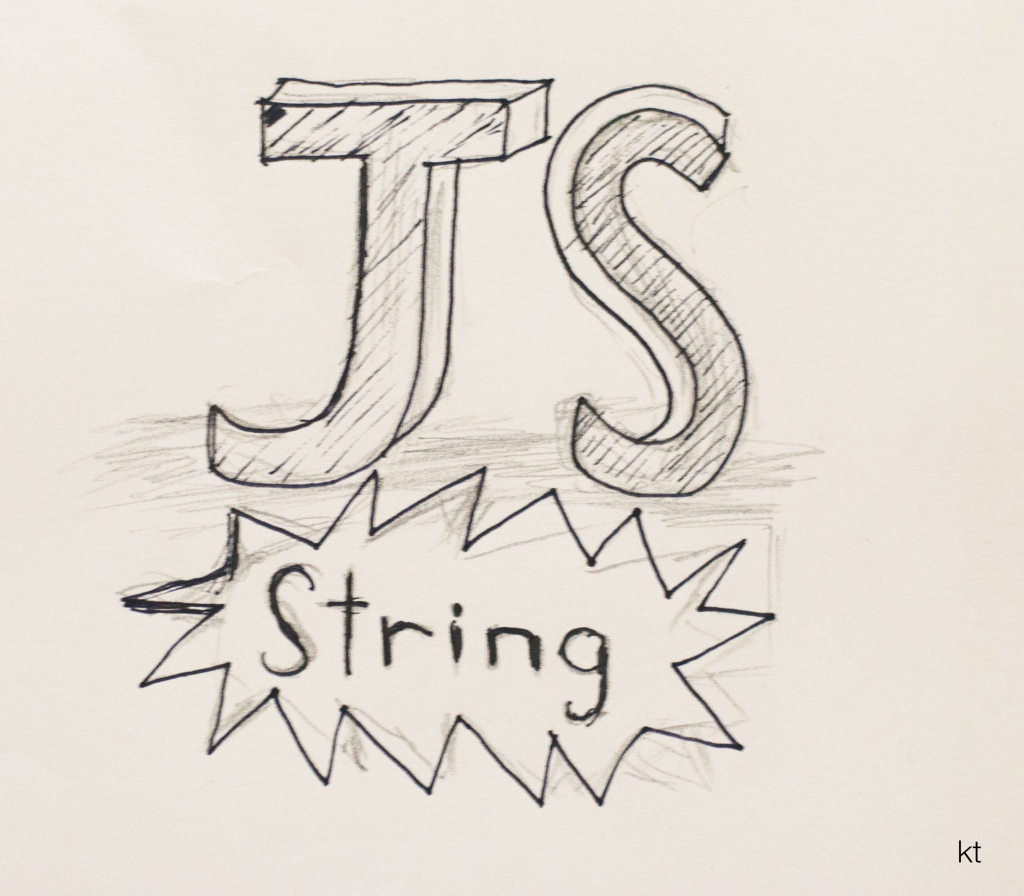 JS
String
kt